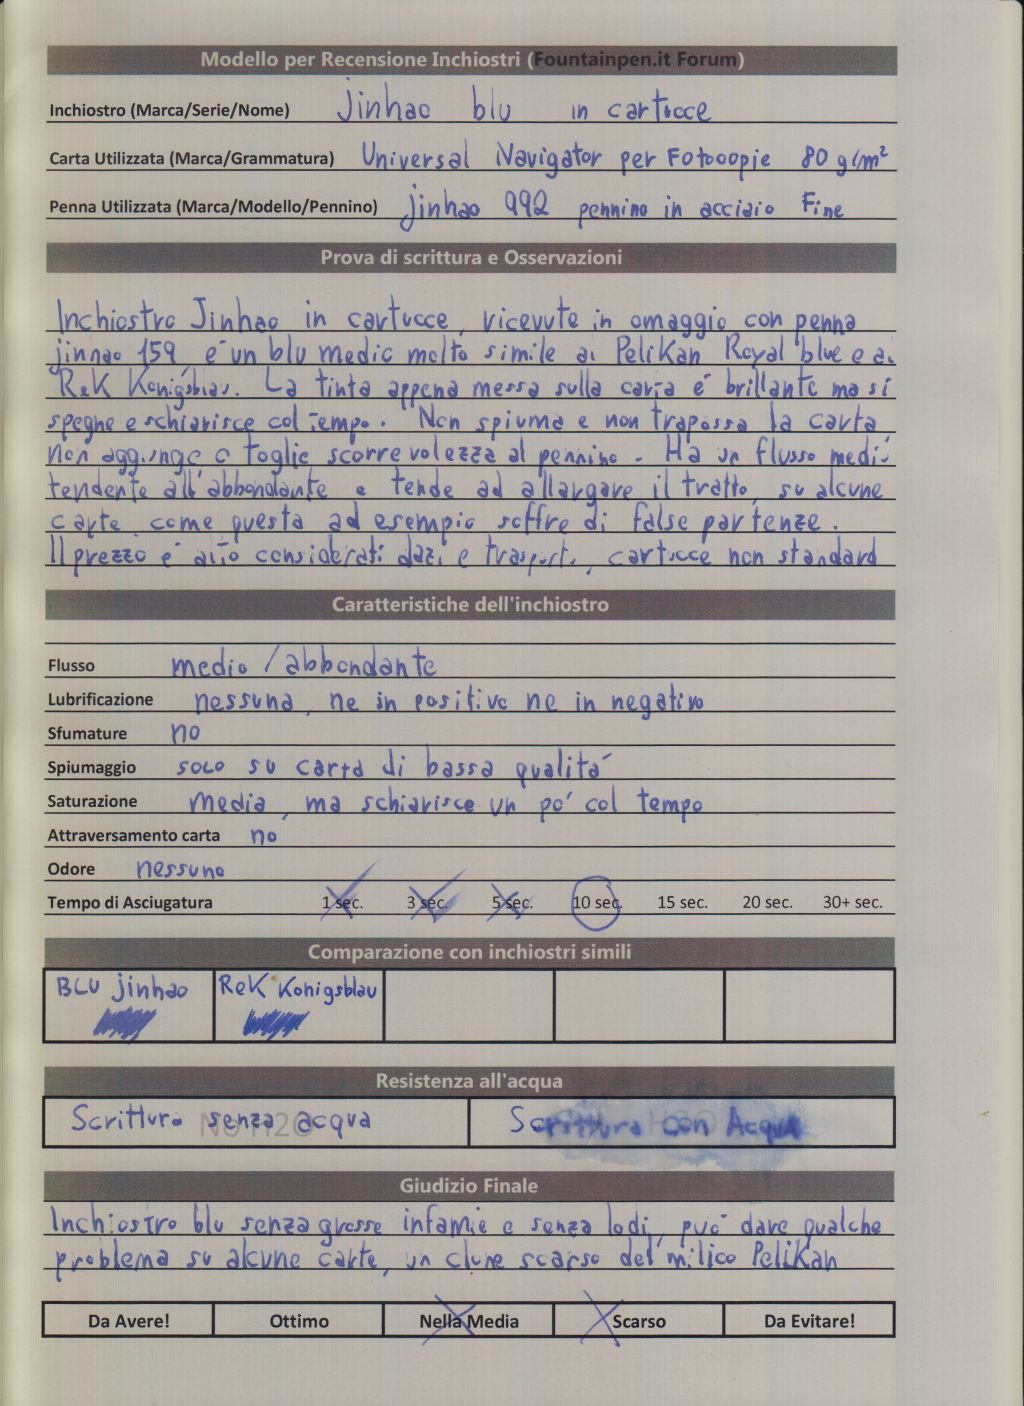 Modello per Recensione Inchiostri (Fountainpen.it Forum)
Inchiostro (Marca/Serie/Nome) jinhao blu in cartucce
Carta Utilizzata (Marca/Grammatura) Universal Navigator per Fotocopie 80 g/m²
Penna Utilizzata (Marca/Modello/Pennino) jinhao 992 pennino in acciaio Fine
Prova di scrittura e Osservazioni
Inchiostro Jinhao in cartucce, ricevute in omaggio con penna
jinhao 159 e' un blu medio molto simile ai Pelikan Royal blue e ai
ReK Konigsblau. La tinta appena messa sulla carta e' brillante ma si
spegne e schiarisce col tempo. Non spiuma e non trapassa la carta
non aggiunge o toglie scorrevolezza al pennino. Ha un flusso medio
tendente all'abbondante e tende ad allargare il tratto, su alcune
carte come questa ad esempio soffre di false partenze.
Il prezzo e' alto considerati dazi e trasporto, cartucce non standard
Caratteristiche dell'inchiostro
Flusso medio / abbondante
Lubrificazione nessuna, ne in positivo ne in negativo
Sfumature no
Spiumaggio solo su carta di bassa qualita'
Saturazione Media, ma schiarisce un po' col tempo
Attraversamento carta no
Odore nessuno
Tempo di Asciugatura 1 sec. 3 sec. 5 sec. 10 sec. 15 sec. 20 sec. 30+ sec.
Comparazione con inchiostri simili
BLU jinhao ReK Konigsblau
Resistenza all'acqua
Scrittura senza acqua Scrittura con Acqua
No H2O H2O
Giudizio Finale
Inchiostro blu senza grosse infamie e senza lodi, puo' dare qualche
problema su alcune carte, un clone scarso del mitico Pelikan
Da Avere! Ottimo Nella Media Scarso Da Evitare!